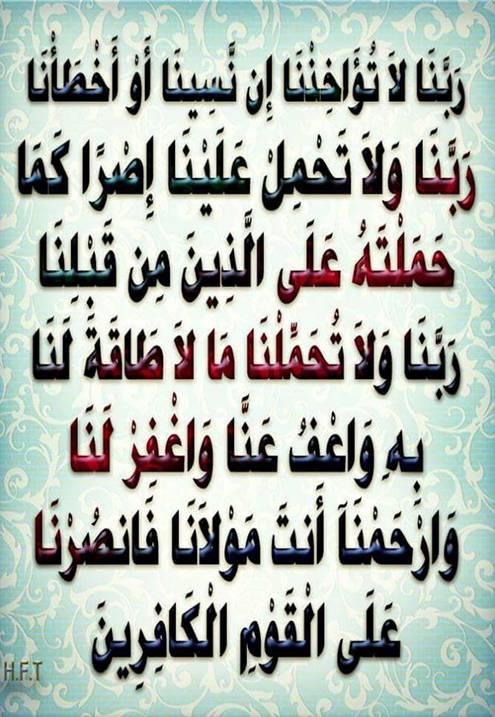 رَبَّنَا لاَ تُؤَاخِذْنَا إِن نَّسِينَا أَوْ أَخْطَأْنَا
رَبَّنَا وَلاَ تَحْمِلْ عَلَيْنَا إِصْرًا كَمَا
حَمَلْتَهُ عَلَى الَّذِينَ مِن قَبْلِنَا
رَبَّنَا وَلاَ تُحَمِّلْنَا مَا لاَ طَاقَةَ لَنَا
بِهِ وَاعْفُ عَنَّا وَاغْفِرْ لَنَا
وَارْحَمْنَآ أَنتَ مَوْلاَنَا فَانصُرْنَا
عَلَى الْقَوْمِ الْكَافِرِينَ
H.F.T